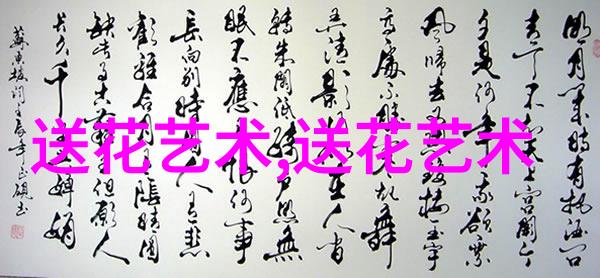 送花艺术,送花艺术
明月幾時有把酒問
青天不知天上宫闕今
夕是何年我欲乘
風歸去又恐瓊樓玉宇
高處不勝寒起舞
弄清影何似在人間
轉朱閣低綺户照無
眠不應有恨何事
長向别時圓人有悲
歡離合月有陰晴圓
缺此事古難全但願人
長久千里共嬋娟
蘇東坡詞